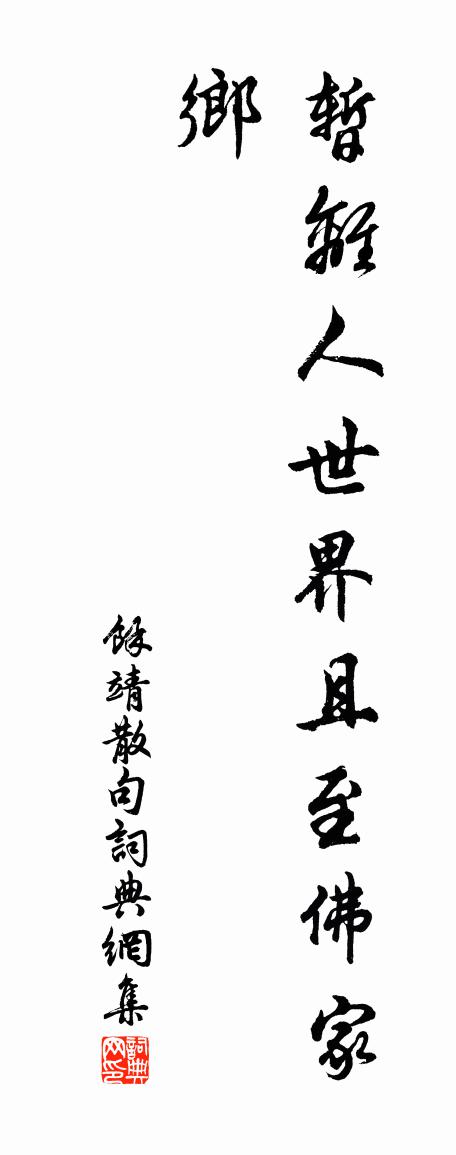 暫離人世界且至佛家
鄉
餘靖散句詞典網集
詞典
网印